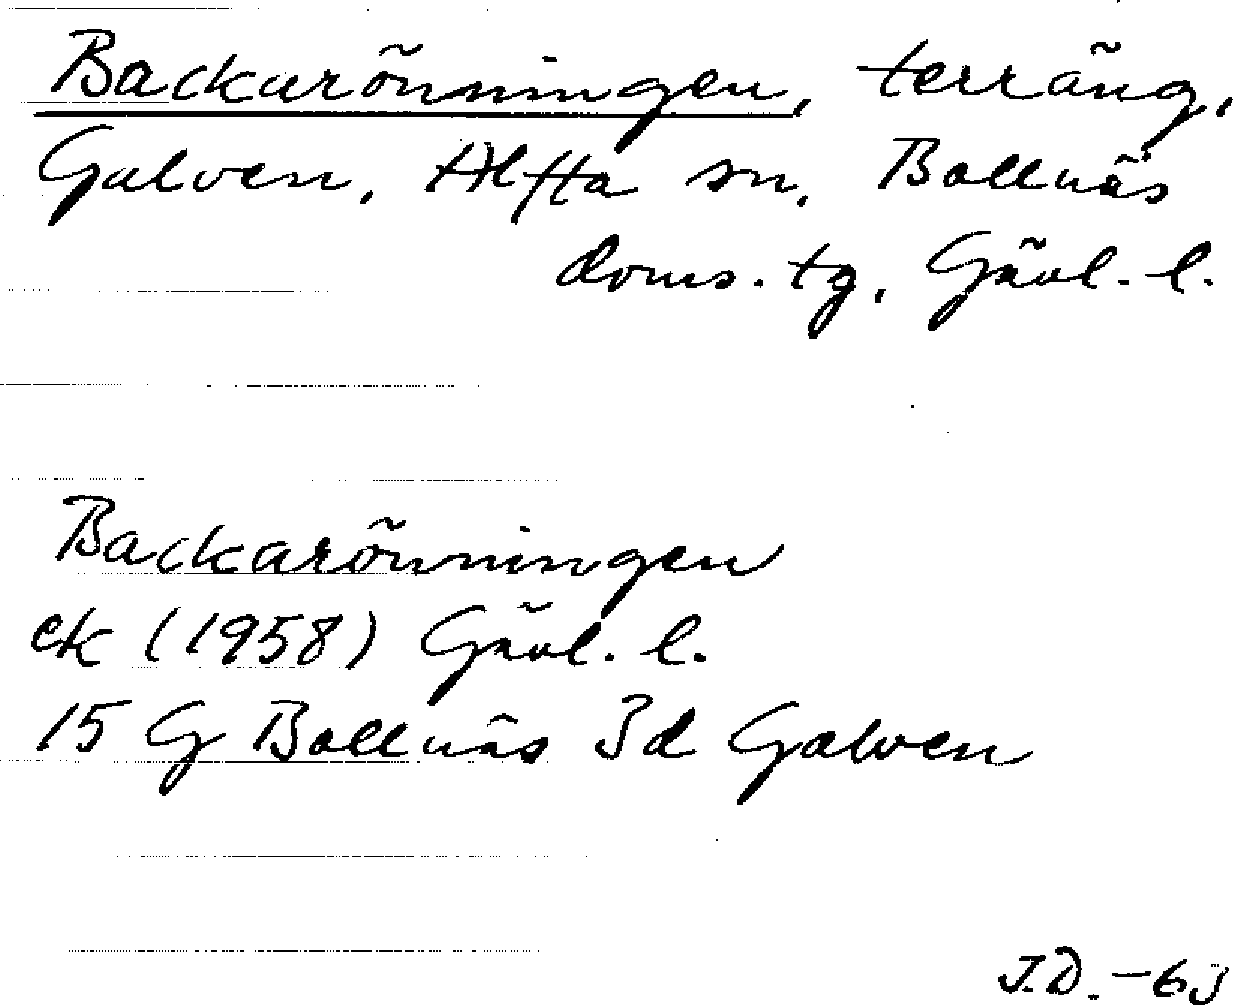 Backarönningen, terräng,
Galven, Alfta sn, Bollnäs
doms. tg, Gävl. l.
Backarönningen
ek (1958) Gävl. l.
15 G Bollnäs 3d Galven
J.D. -63